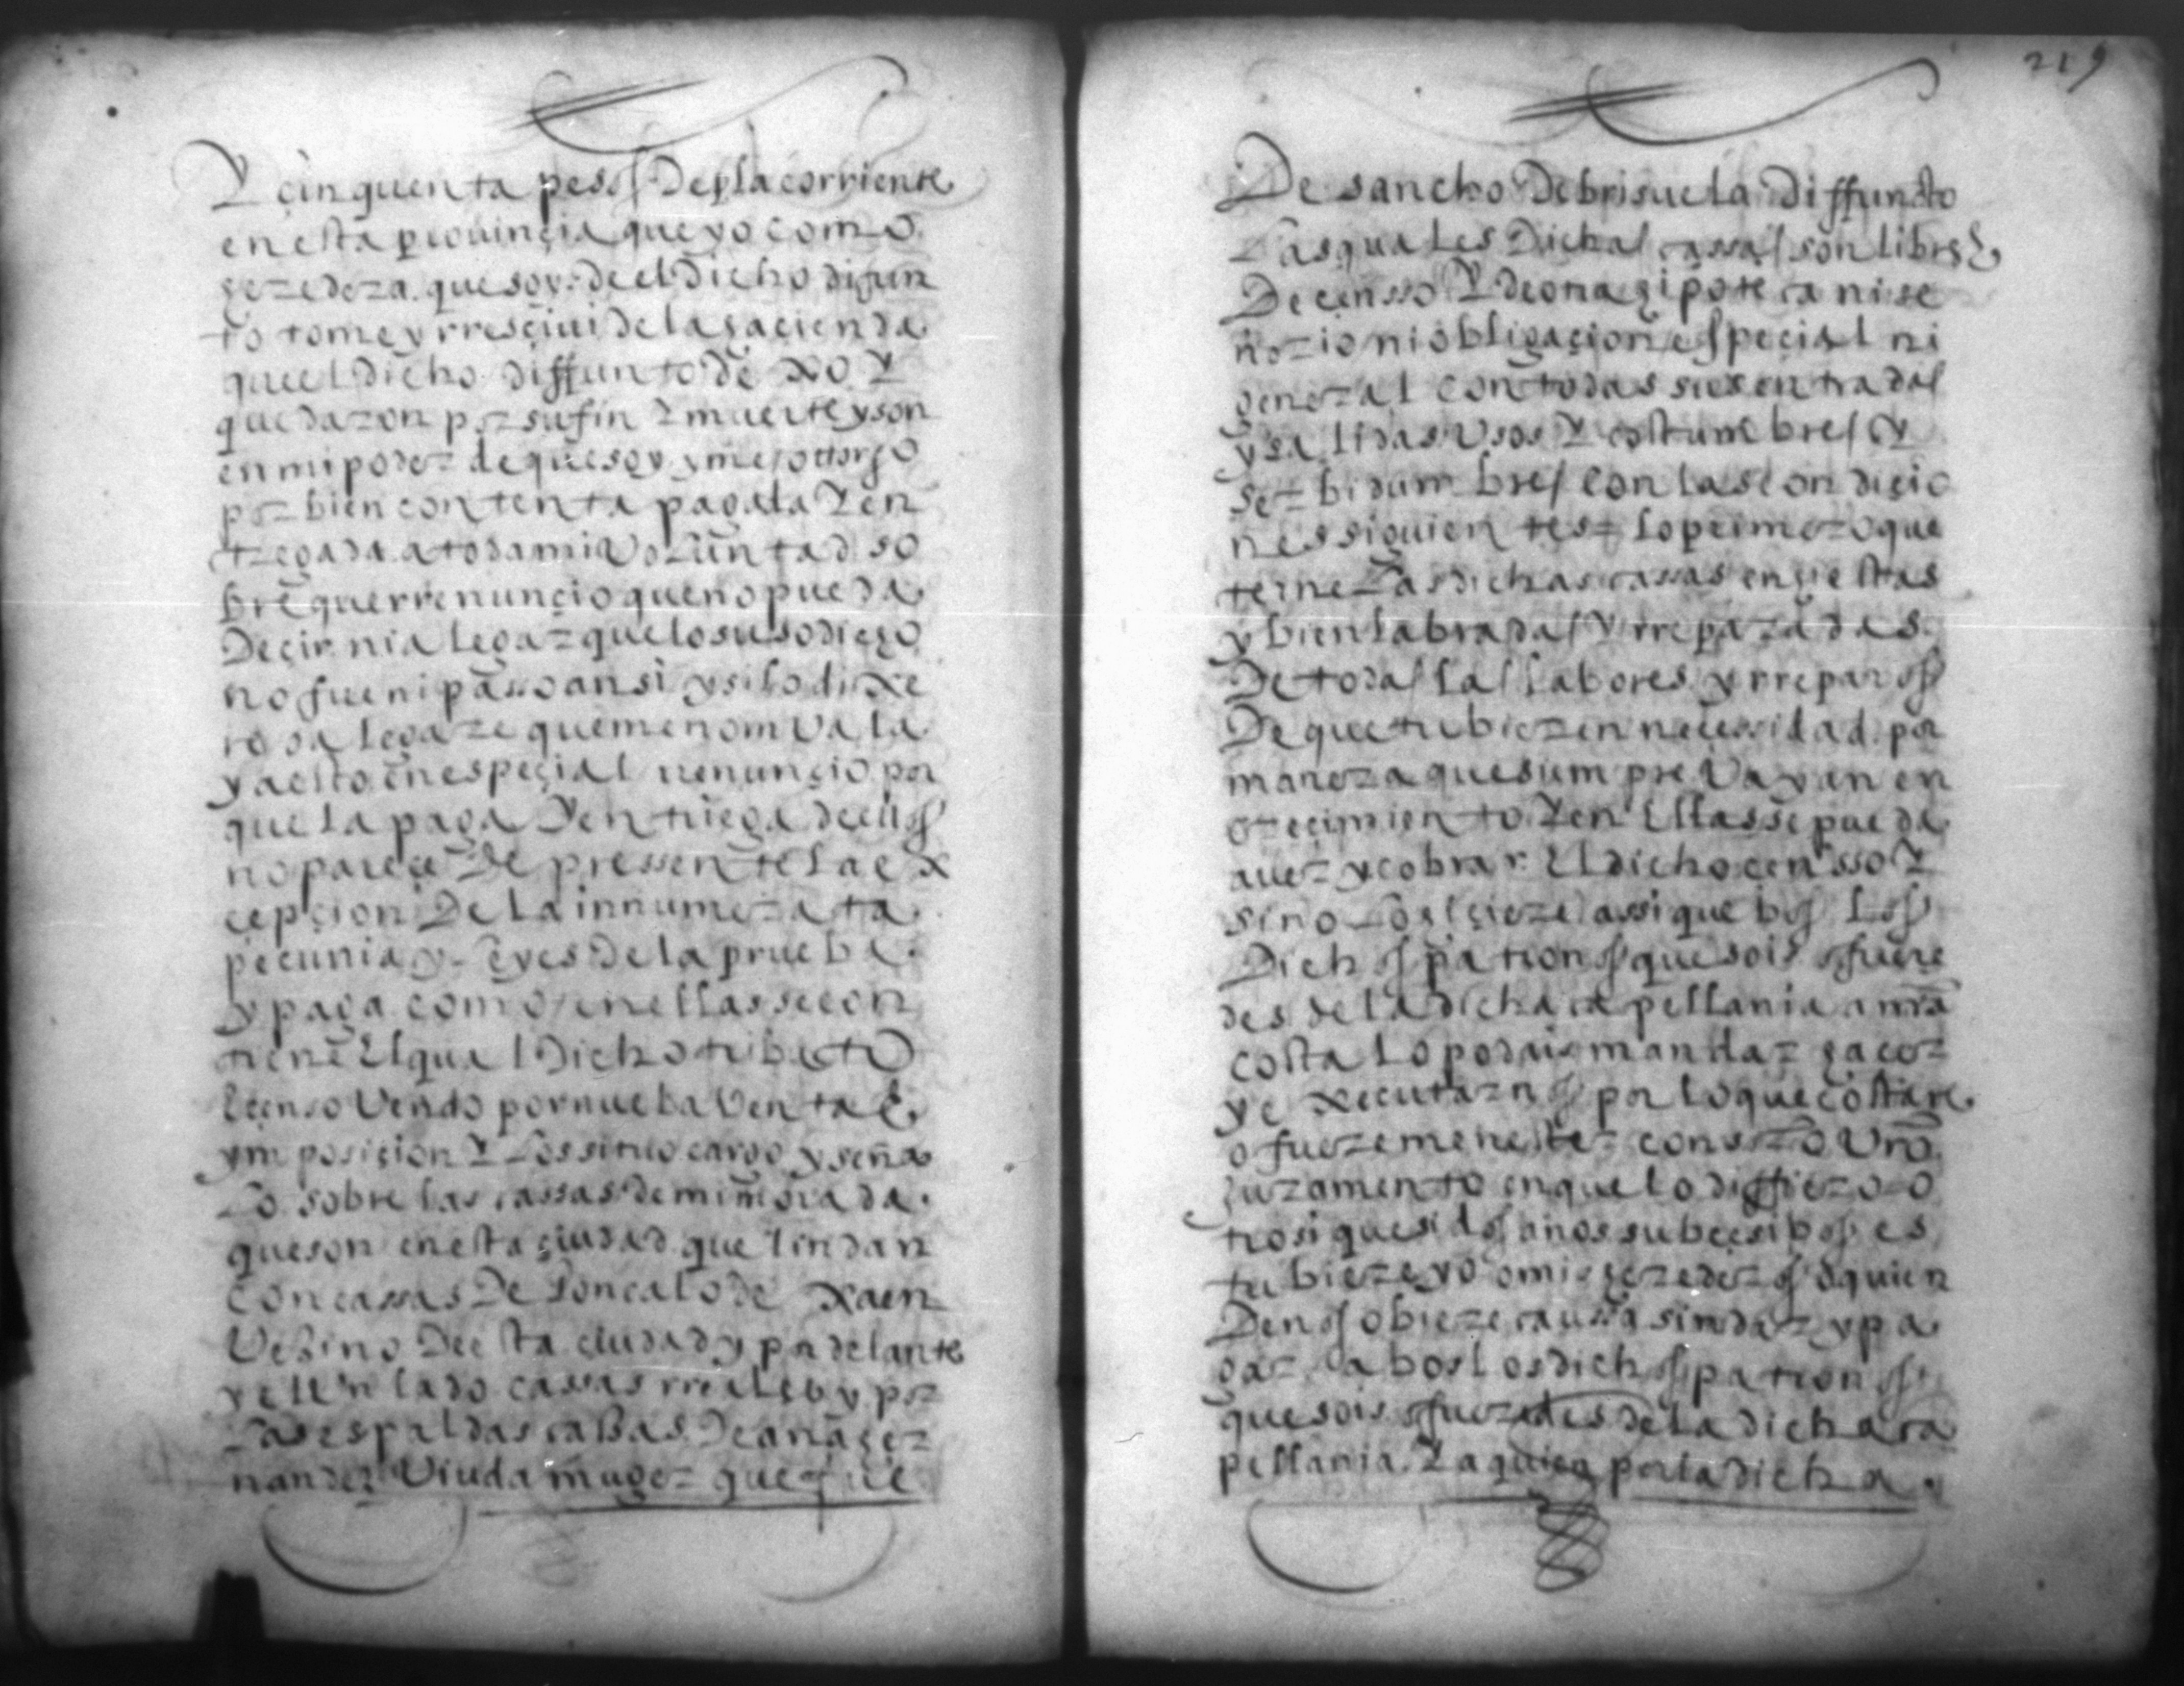 Y çinquenta pesos De placorriente
en esta prouinçia que yo como
eredera que soy de el Dicho difun
to tome y rresçiui de la hacienda
que el dicho diffunto dexo Y
quedaron por su fin Y muerte y son
en mi poder de que soy y me otorgo
por bien contenta pagada Y en
tregada a toda mi Voluntad so
bre que rrenunçio que no pueda
Deçir ni alegar que lo susodicho
no fue ni passo ansi y si lo dixe
re o alegare que me non Vala
y a esto en espeçial rrenunçio por
que la paga Y entriega de ellos
no pareçe De pressente La ex
cepçion De La innumerata
pecunia y Leyes de la prueba
y paga como en ellas se con
tiene El qual Dicho tributo
E çenso Vendo por nueba Venta E
ymposiçion Y Los situo cargo y seña
Lo sobre las cassas de mi morada
que son en esta çiudad que lindan
con cassas De Gonçalo de Xaen
Vezino De esta ciudad y por delante
y el Un lado cassas rreales y por
Las espaldas cassas De ana her
nandez Viuda muger que fue
219
De sancho De brisuela Diffuncto
Las quales Dichas cassas son libres
De censso Y de otra hipoteca ni se
ñorio ni obligaçion espeçial ni
general con todas sus entradas
y salidas Usos Y costumbres Y
serbidumbres con las condiçio
nes siguientes Lo primero que
terne Las dichas cassas enhiestas
y bien labradas Y rreparadas
De todas las labores y rreparos
De que tubieren neçessidad por
manera que siempre Vayan en
creçimiento Y en Ellas se pueda
auer y cobrar El dicho censso Y
si no Los hiçiere assi que bos Los
Dichos patronos que sois o fuere
des de la dicha capellania a mia
costa Lo podais mandar haçer
y executarnos por lo que costare
o fuere menester con solo Vro
Juramento en que lo diffiero O
trosi que si dos años subçesibos es
tubiere yo o mis herederos o quien
De nos obiere caussa sin dar y pa
gar a bos Los dichos patronos
que sois o fueredes de La dicha ca
pellania Y a quien por la dicha